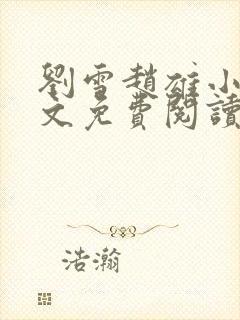 劉雪趙雄小
文免費閱讀
浩瀚